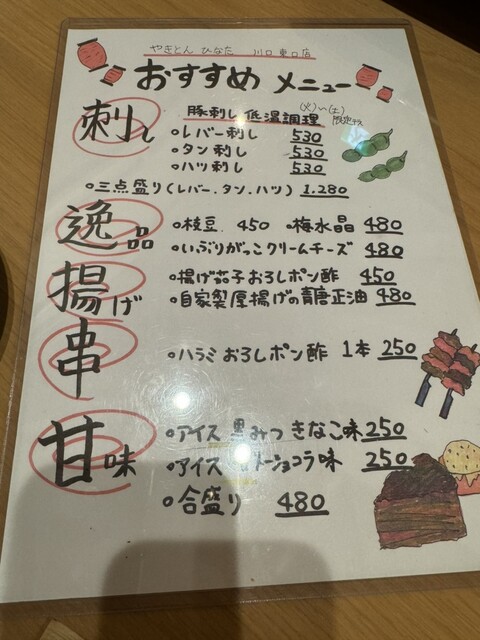 やきとん ひなた 川口東口店
おすすめ メニュー
刺し
豚刺し 低温調理 (火)〜(土)
レバー刺し 530
タン刺し 530
ハツ刺し 530
三点盛り(レバー.タン.ハツ) 1.280
逸品
枝豆. 450 梅水晶 480
いぶりがっこクリームチーズ 480
揚げ
揚げ茄子おろしポン酢 450
自家製厚揚げの青唐正油 480
串
ハラミ おろしポン酢 1本 250
甘味
アイス 黒みつきなこ味 250
アイス ショコラ味 250
合盛り 480